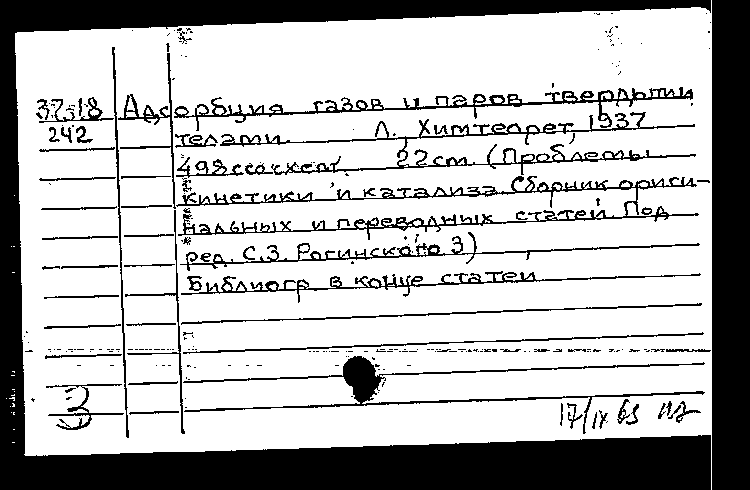 37-18 Адсорбция газов и паров твердыми
242 телами. Л., Химтеорет, 1937
498с со схем. 22 см. (Проблемы
кинетики и катализа. Сборник ориги-
нальных и переводных статей. Под
ред. С.З. Рогинского 3)
Библиогр. в конце статей
3
17/IX 63